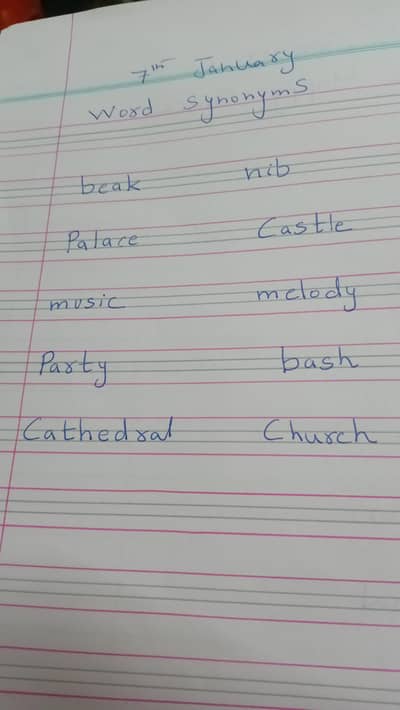 7th January
Word Synonyms
beak nib
Palace Castle
music melody
Party bash
Cathedral Church